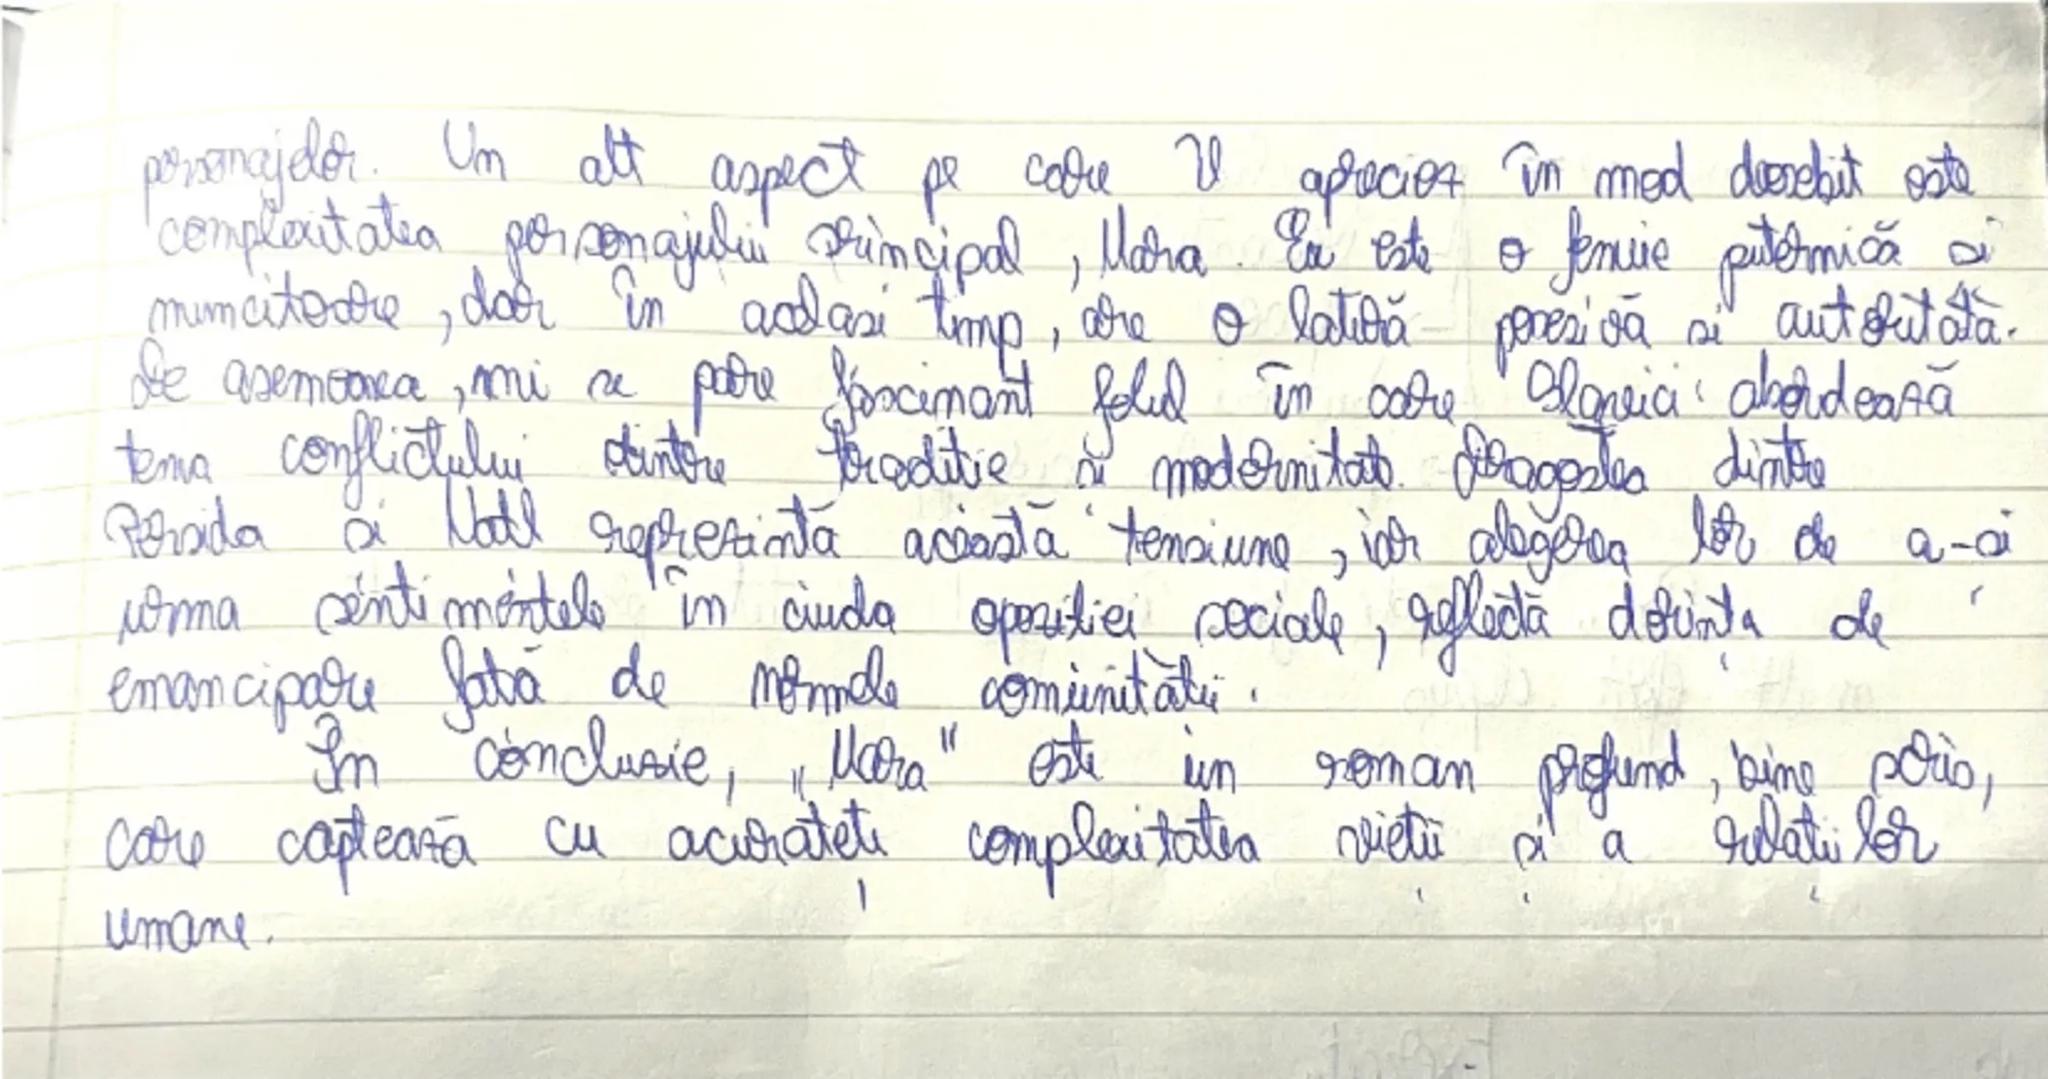 personajelor. Un alt aspect pe care îl apreciez în mod deosebit este
complexitatea personajului principal, Mara. Ea este o femeie puternică și
muncitoare, dar în același timp, are o latură posesivă și autoritată.
De asemenea, mi se pare fascinant felul în care Slavici abordează
tema conflictului dintre tradiție și modernitate. Dragostea dintre
Persida și Națl reprezintă această tensiune, iar alegerea lor de a-și
urma sentimentele în ciuda opoziției sociale, reflectă dorința de
emancipare față de normele comunității.
În concluzie, „Mara" este un roman profund, bine scris,
care captează cu acuratețe complexitatea vieții și a relațiilor
umane.